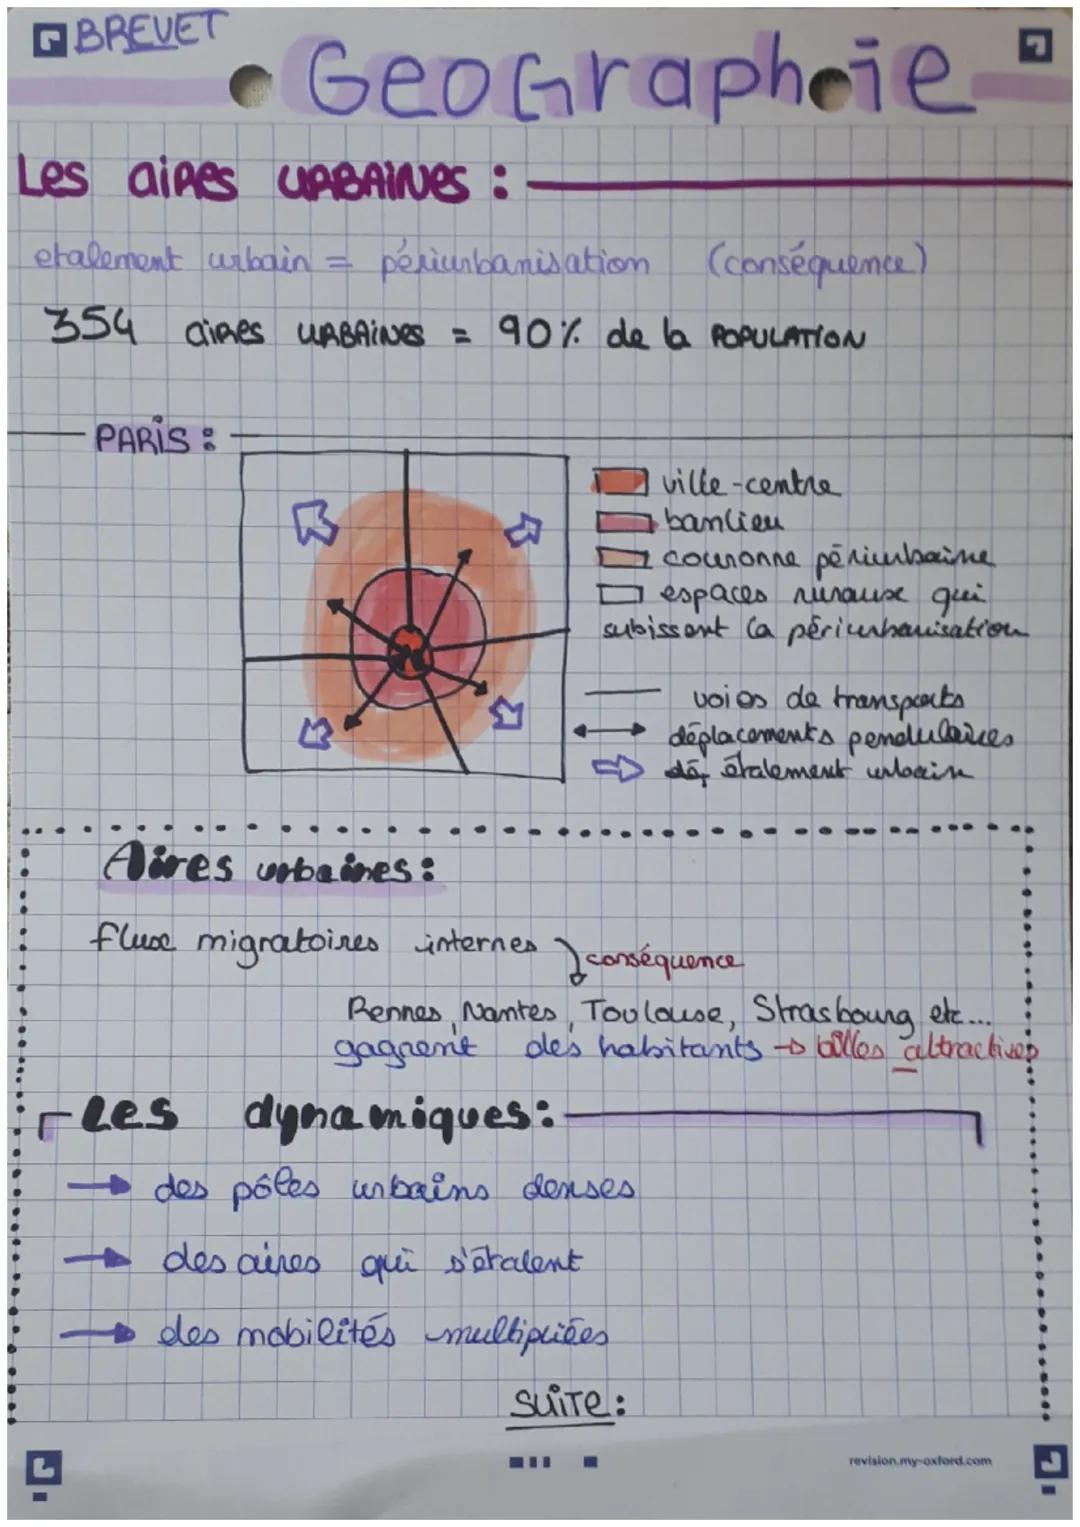 BREVET
GeoGraphie
Les aires URBAiNes :
etalement urbain = périurbanisation (conséquence)
354 aires URBAiNes = 90% de la POPULATiON
PARiS :
ville-centre
banlieu
couronne périurbaine
espaces ruraux qui
subissent la périurbanisation
voies de transports
déplacements pendulaires
étalement urbain
Aires urbaines :
flux migratoires internes
conséquence
Rennes, Nantes, Toulouse, Strasbourg etc...
gagnent des habitants → villes attractives
Les dynamiques :
→ des pôles urbains denses
→ des aires qui s'étalent
→ des mobilités multipliées
SUiTe :
revision.my-oxford.com